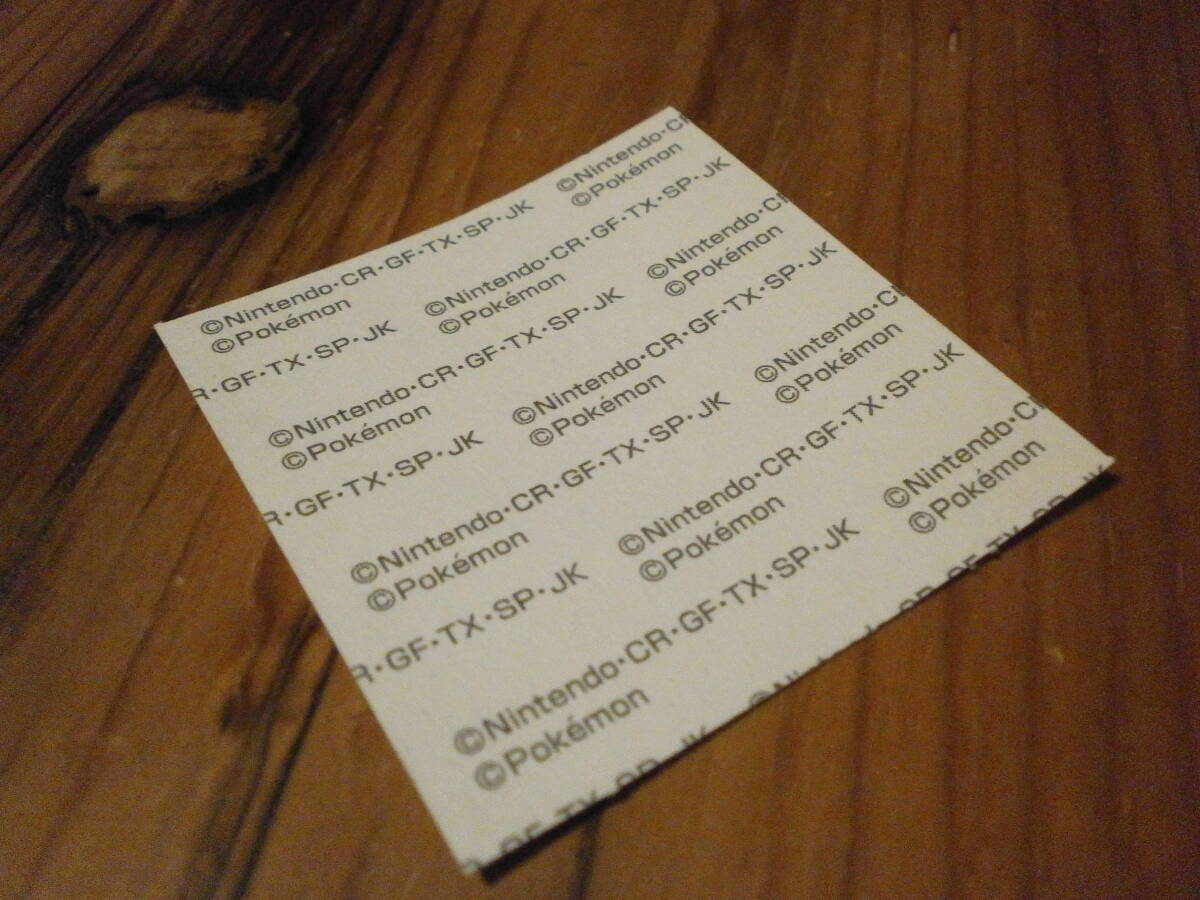 ©Nintendo·CR·GF·TX·SP·JK
©Pokémon
©Nintendo·CR
©Pokémon
R·GF·TX·SP·JK
©Nintendo·CR·GF·TX·SP·JK
©Pokémon
©Nintendo·CR·GF·TX·SP·JK
©Pokémon
©Nintendo·CR
©Pokémon
R·GF·TX·SP·JK
©Nintendo·CR·GF·TX·SP·JK
©Pokémon
©Nintendo·CR·GF·TX·SP·JK
©Pokémon
©Nintendo·CR
©Pokémon
R·GF·TX·SP·JK
©Nintendo·CR·GF·TX·SP·JK
©Pokémon
©Nintendo·CR·GF·TX·SP·JK
©Pokémon
©Nintendo·CR
©Pokémon
GF·TX·SP·JK
CR·GF·TX·SP·JK